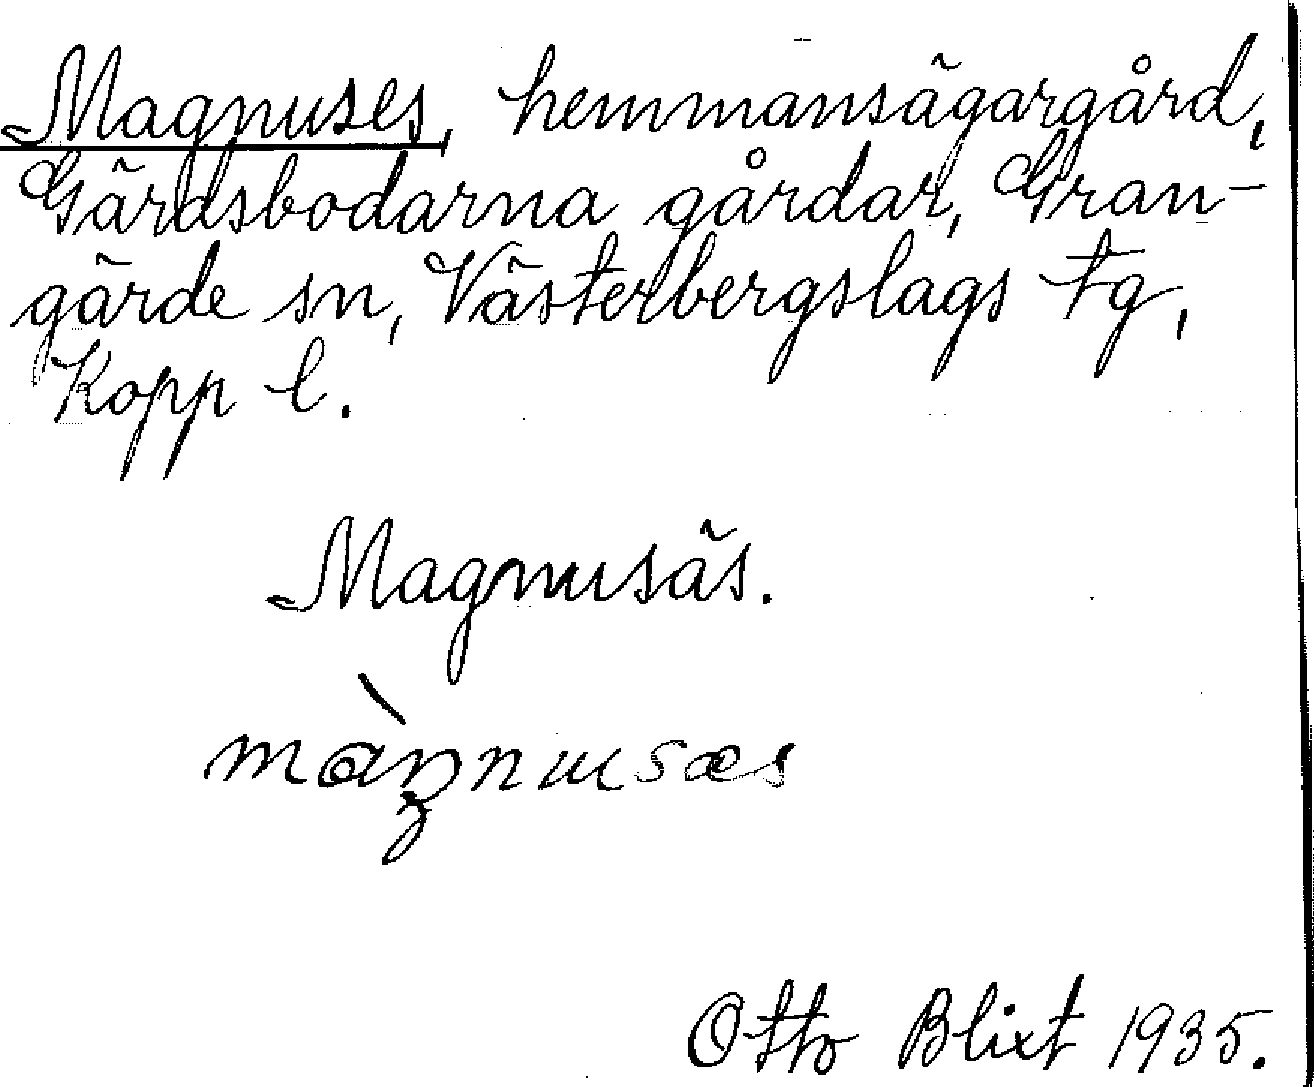 Magnuses, hemmansägargård,
Gärdsbodarna gårdar, Gran-
gärde sn, Västerbergslags tg,
Kopp l.
Magnusäs.
màŋnusæs
Otto Blixt 1935.